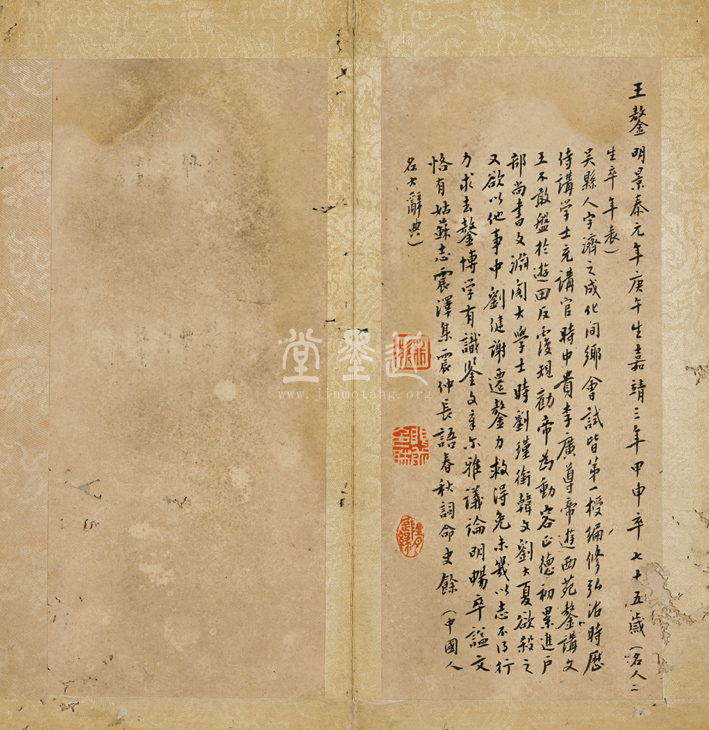 王鏊明景泰元年庚午生嘉靖三年甲申卒七十五歲（名人二
生卒年表）
吳縣人字濟之成化间鄉會試皆第一授編修弘治時歷
侍講学士充講官時中貴李廣導帝遊西苑鏊講文
王不敢盤於遊田反覆規勸帝為動容正德初累進户
部尚書文淵阁大學士時劉瑾銜韓文劉大夏欲殺之
又欲以他事中劉健謝遷鏊力救得免未幾以志不得行
力求去鏊博学有識鋻文章尔雅議論明暢卒謚文
恪有姑蘇志震澤集震仲長語春秋詞命史餘（中國人
名大辭典）
近墨堂
www.jinmotang.org